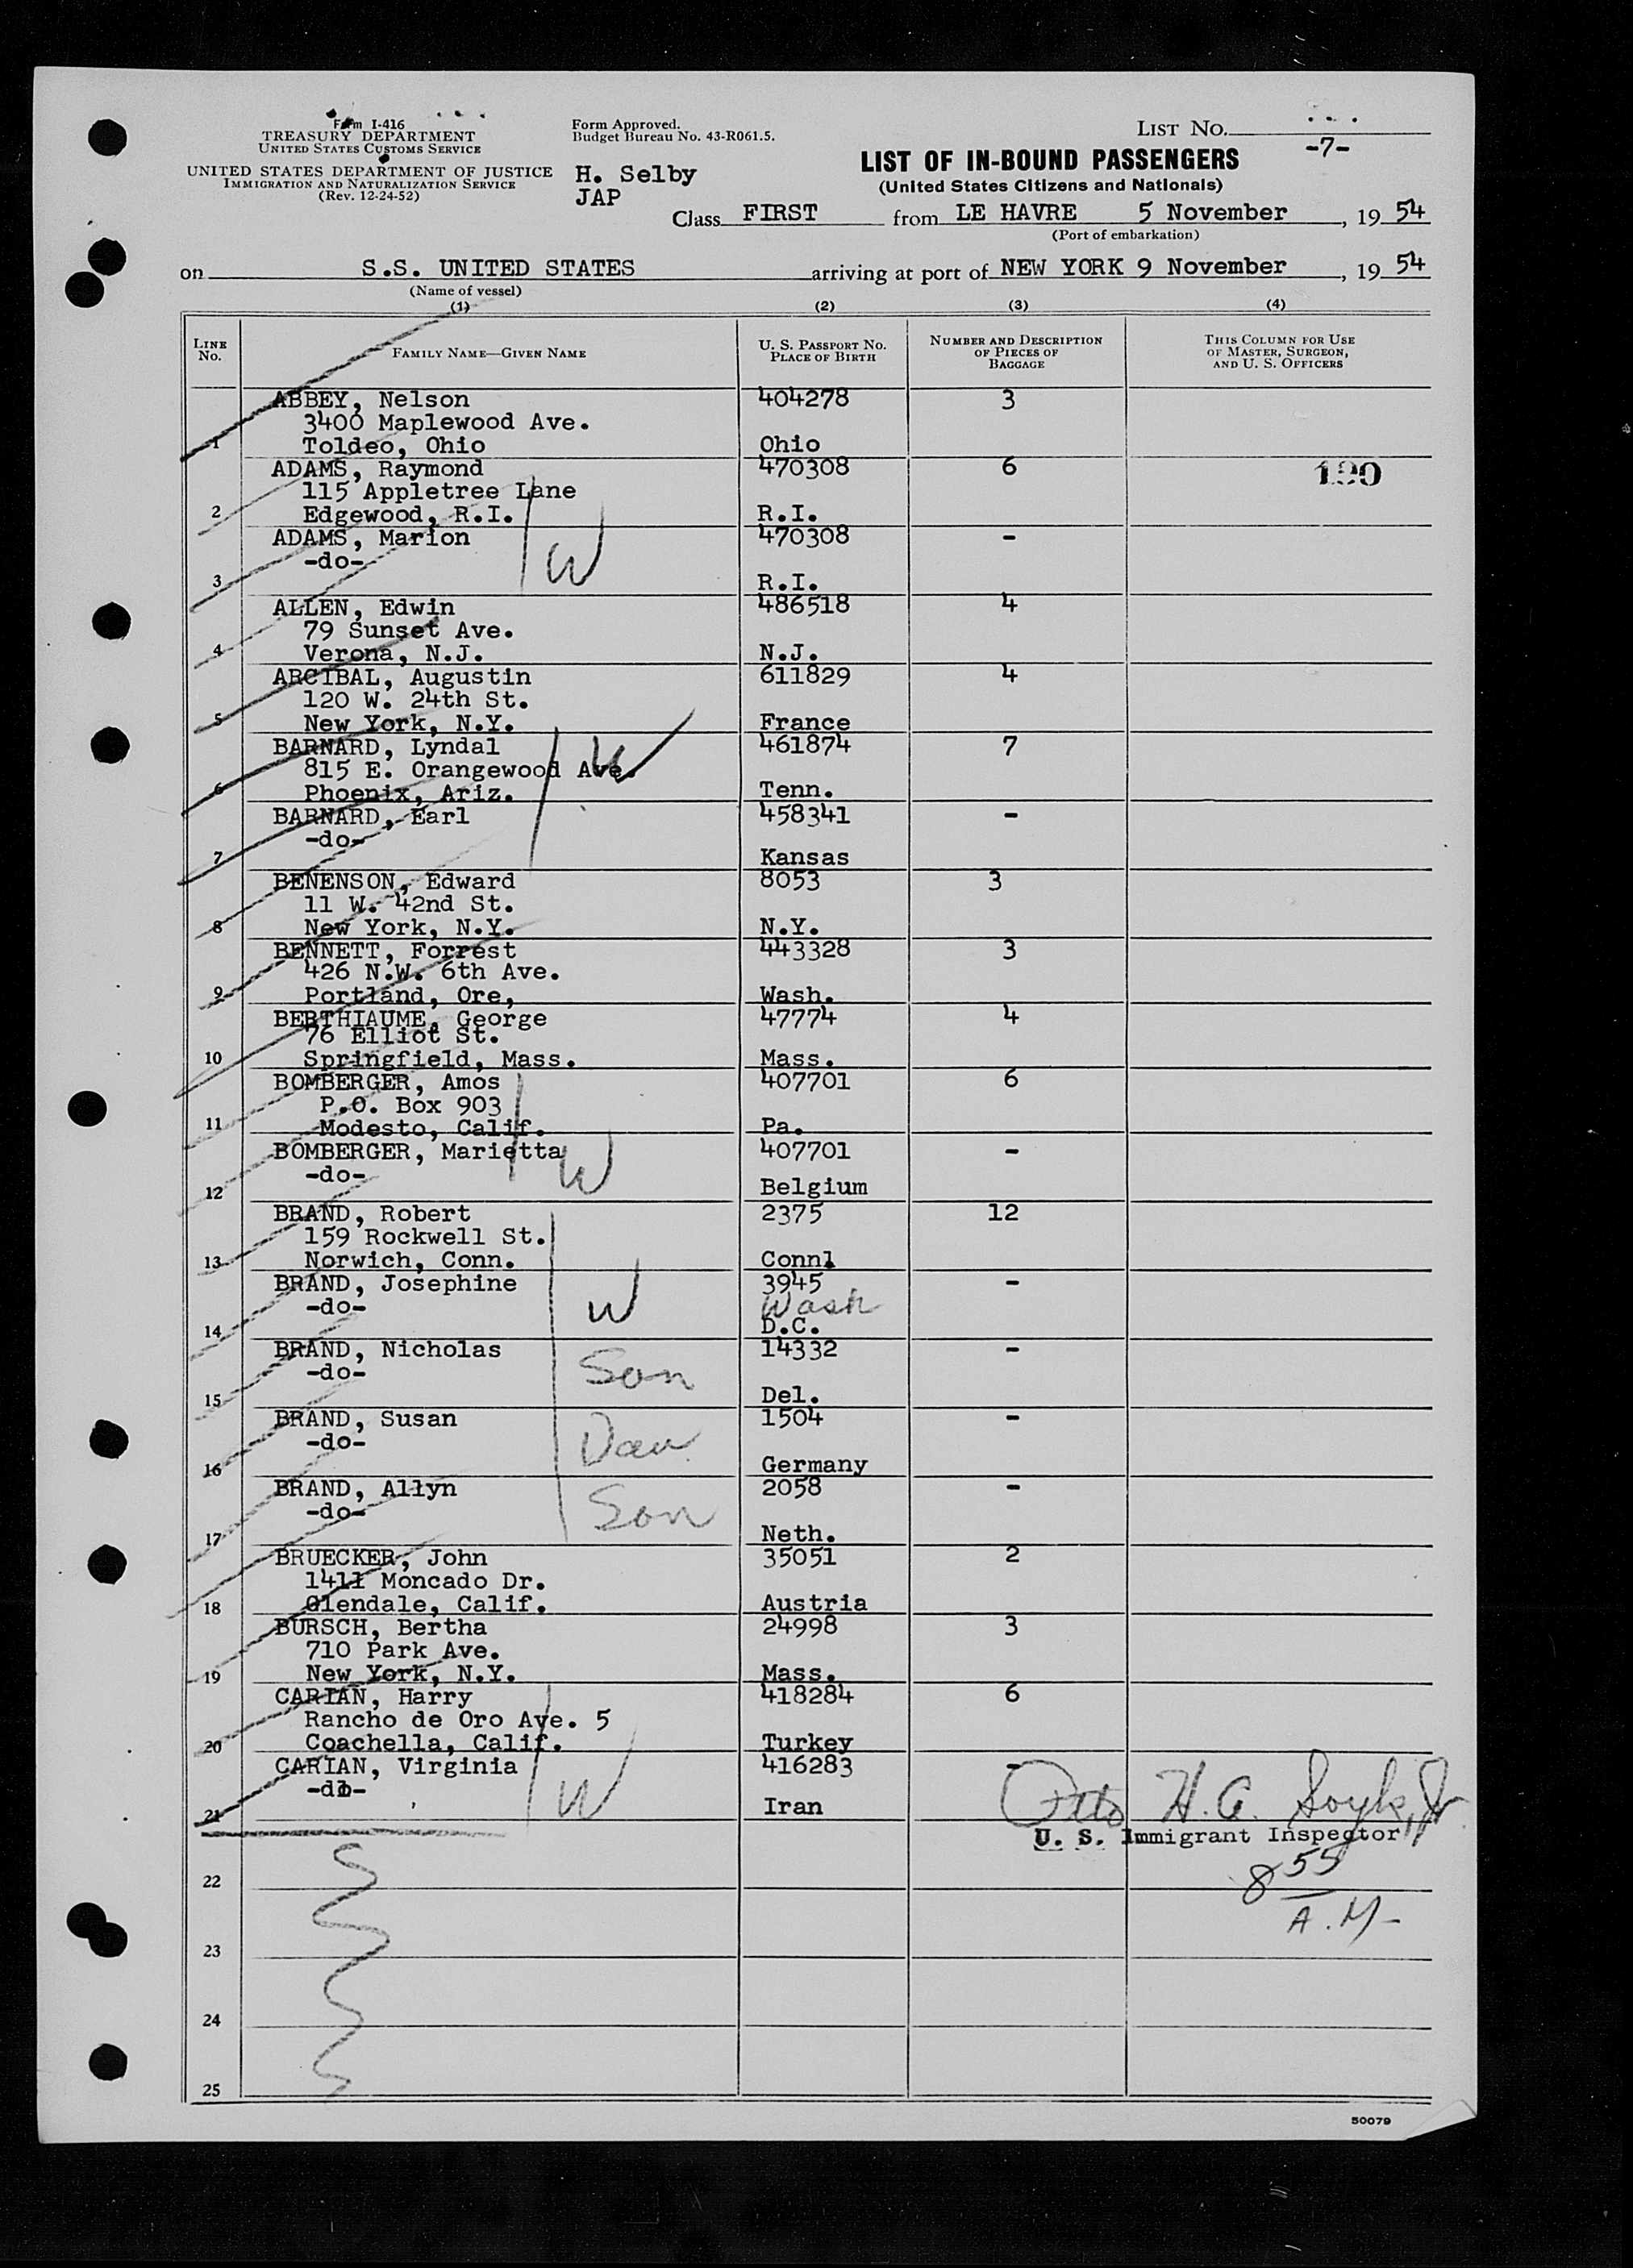 Form I-416
TREASURY DEPARTMENT
UNITED STATES CUSTOMS SERVICE
UNITED STATES DEPARTMENT OF JUSTICE
IMMIGRATION AND NATURALIZATION SERVICE
(Rev. 12-24-52)
Form Approved.
Budget Bureau No. 43-R061.5.
H. Selby
JAP
LIST NO.
-7-
LIST OF IN-BOUND PASSENGERS
(United States Citizens and Nationals)
Class FIRST from LE HAVRE 5 November, 19 54
(Port of embarkation)
on S.S. UNITED STATES arriving at port of NEW YORK 9 November, 19 54
(Name of vessel)
(1) (2) (3) (4)
LINE NO.
FAMILY NAME—GIVEN NAME
U. S. PASSPORT NO.
PLACE OF BIRTH
NUMBER AND DESCRIPTION
OF PIECES OF
BAGGAGE
THIS COLUMN FOR USE
OF MASTER, SURGEON,
AND U. S. OFFICERS
ABBEY, Nelson 404278 3
3400 Maplewood Ave.
1 Toldeo, Ohio Ohio
ADAMS, Raymond 470308 6 190
115 Appletree Lane
2 Edgewood, R.I. R.I.
ADAMS, Marion 470308 -
-do- W
3 R.I.
ALLEN, Edwin 486518 4
79 Sunset Ave.
4 Verona, N.J. N.J.
ARCIBAL, Augustin 611829 4
120 W. 24th St.
5 New York, N.Y. France
BARNARD, Lyndal W 461874 7
815 E. Orangewood Ave.
6 Phoenix, Ariz. Tenn.
BARNARD, Earl 458341 -
-do-
7 Kansas
BENENSON, Edward 8053 3
11 W. 42nd St.
8 New York, N.Y. N.Y.
BENNETT, Forrest 443328 3
426 N.W. 6th Ave.
9 Portland, Ore, Wash.
BERTHIAUME, George 47774 4
76 Elliot St.
10 Springfield, Mass. Mass.
BOMBERGER, Amos 407701 6
P.O. Box 903
11 Modesto, Calif. Pa.
BOMBERGER, Marietta W 407701 -
-do-
12 Belgium
BRAND, Robert 2375 12
159 Rockwell St.
13 Norwich, Conn. Connl
BRAND, Josephine 3945 -
-do- W Wash
14 D.C.
BRAND, Nicholas 14332 -
-do- Son
15 Del.
BRAND, Susan 1504 -
-do- Dau
16 Germany
BRAND, Allyn 2058 -
-do- Son
17 Neth.
BRUECKER, John 35051 2
1411 Moncado Dr.
18 Glendale, Calif. Austria
BURSCH, Bertha 24998 3
710 Park Ave.
19 New York, N.Y. Mass.
CARIAN, Harry 418284 6
Rancho de Oro Ave. 5
20 Coachella, Calif. Turkey
CARIAN, Virginia 416283 -
-do- W Otto H. A. Jr.
21 Iran
U. S. Immigrant Inspector
22
8 55
A.M-
23
24
25
50079